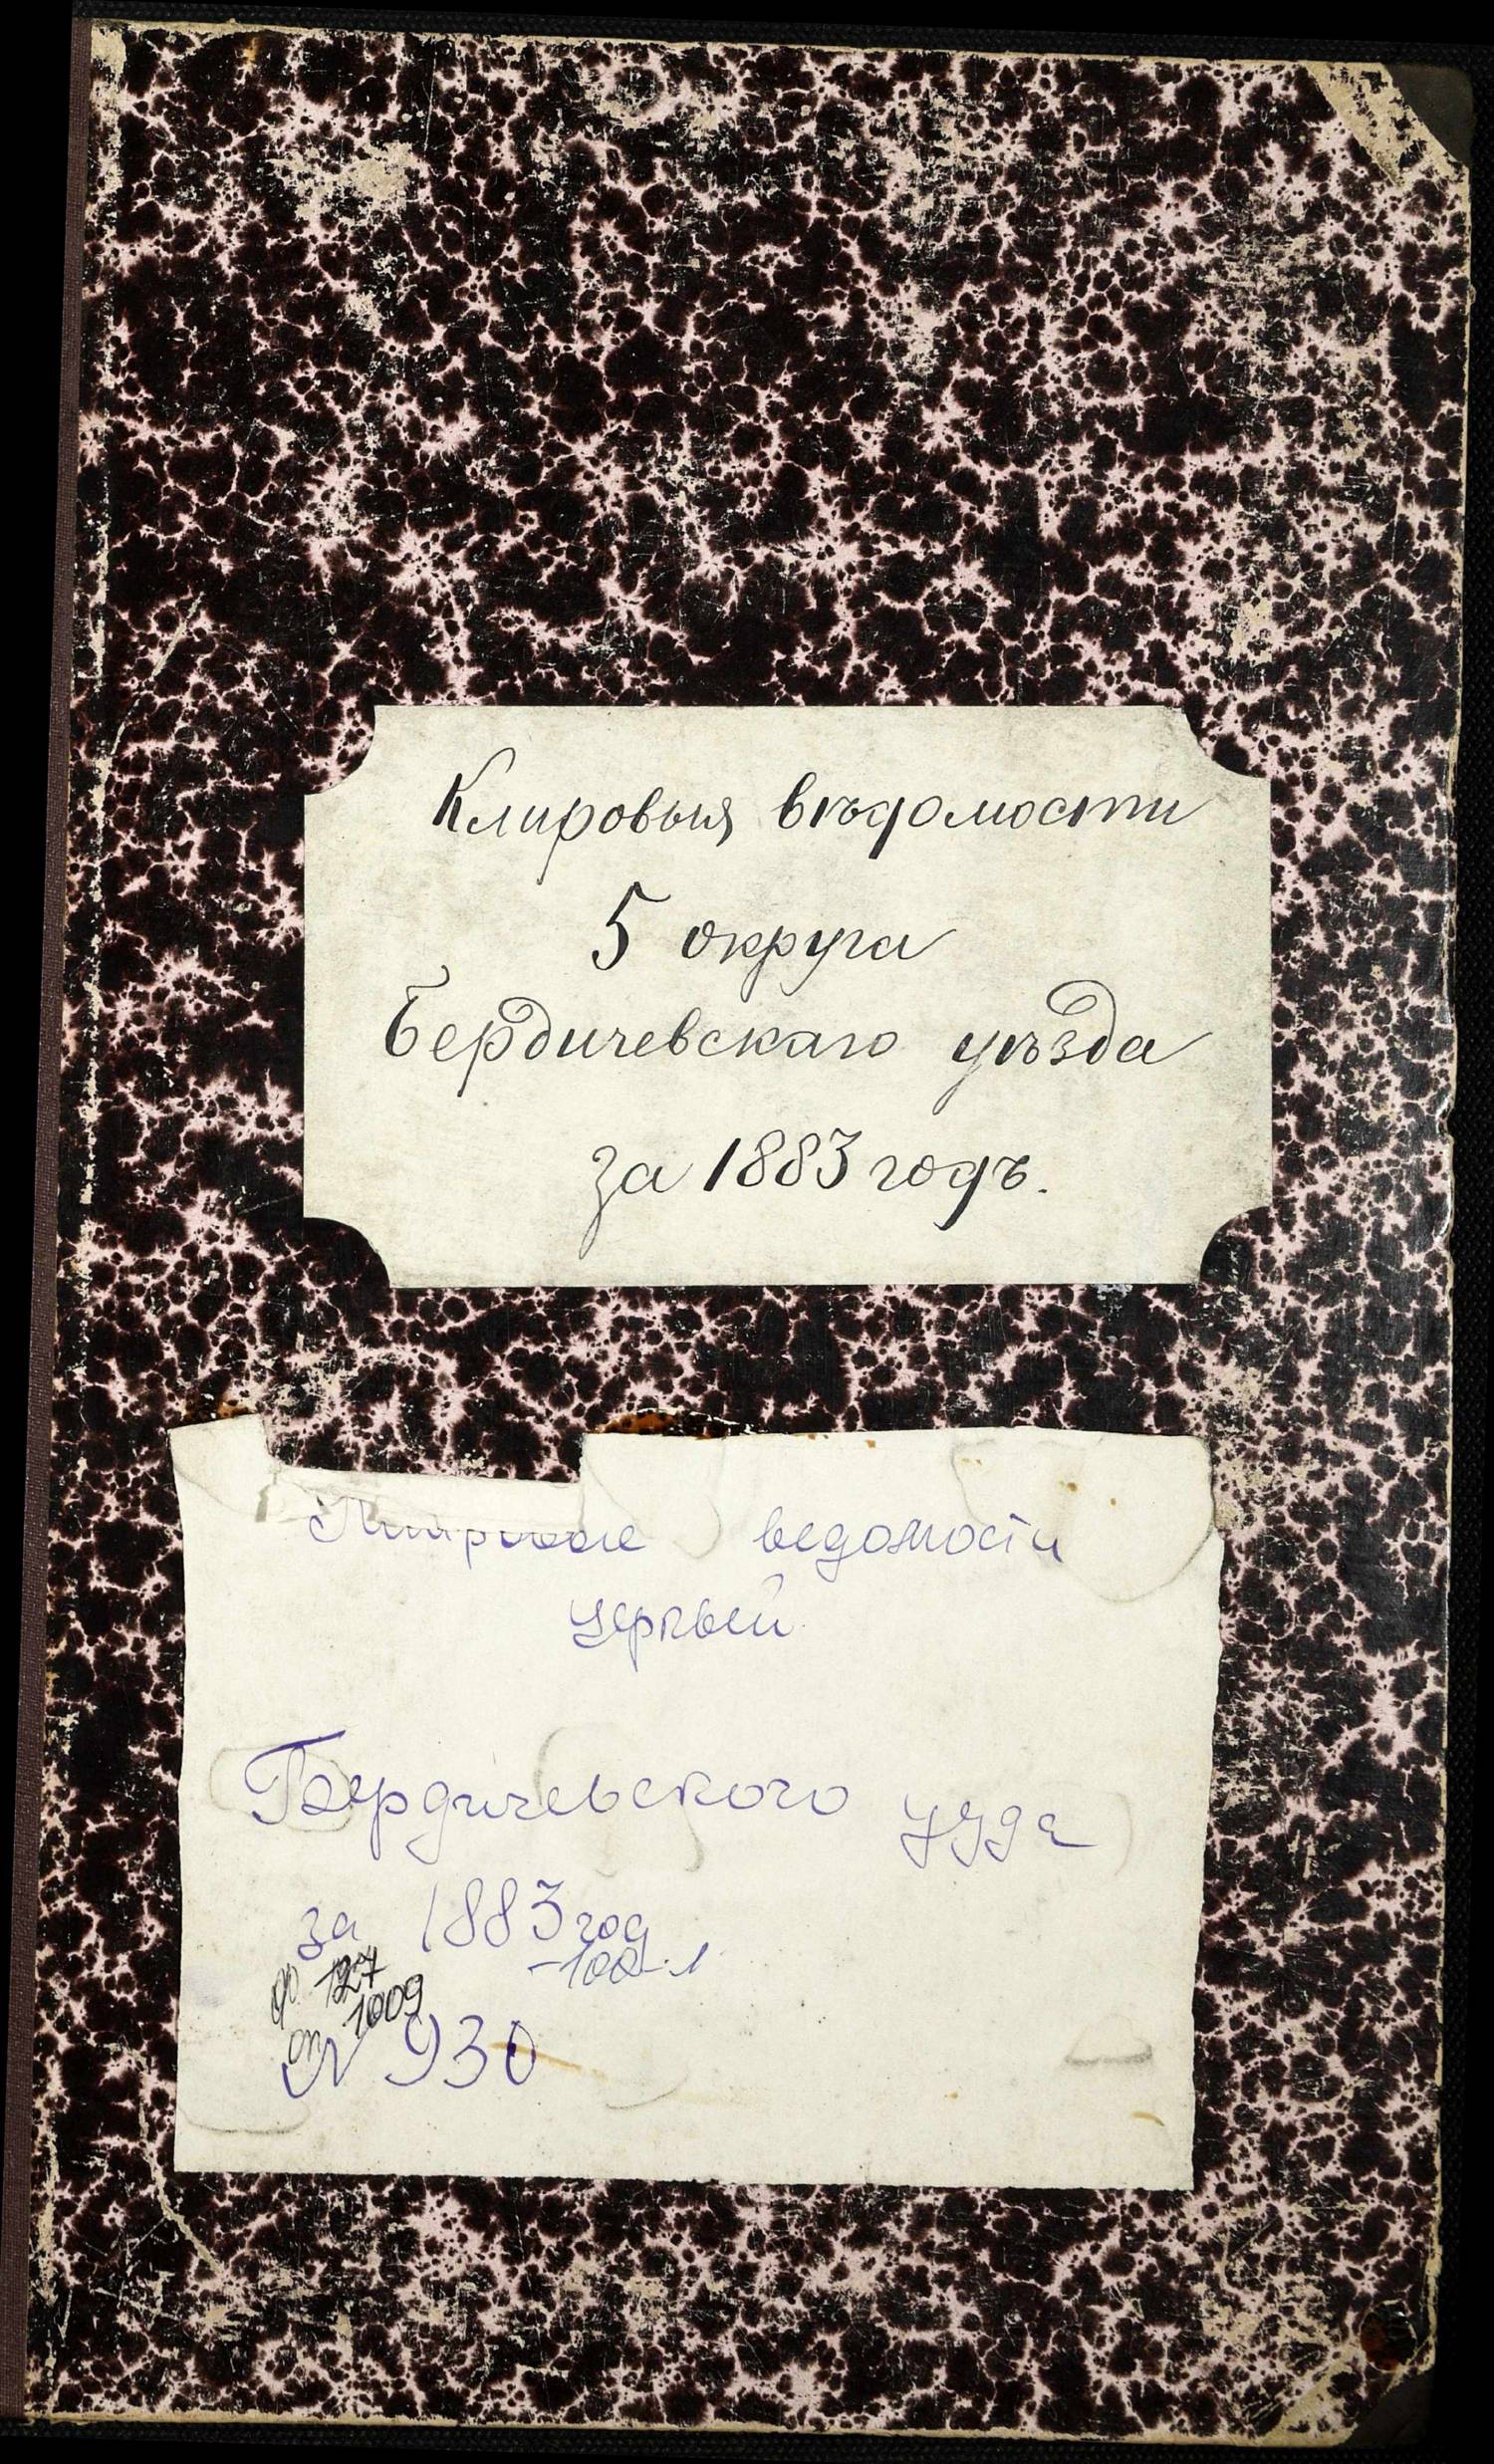 Клировыя вѣдомости
5 округа
Бердичевскаго уѣзда
за 1883 годъ.
Клировые ведомости
церквей
Бердичевского уезда
за 1883 год
-100 л
ф 127
оп 1009
N 930